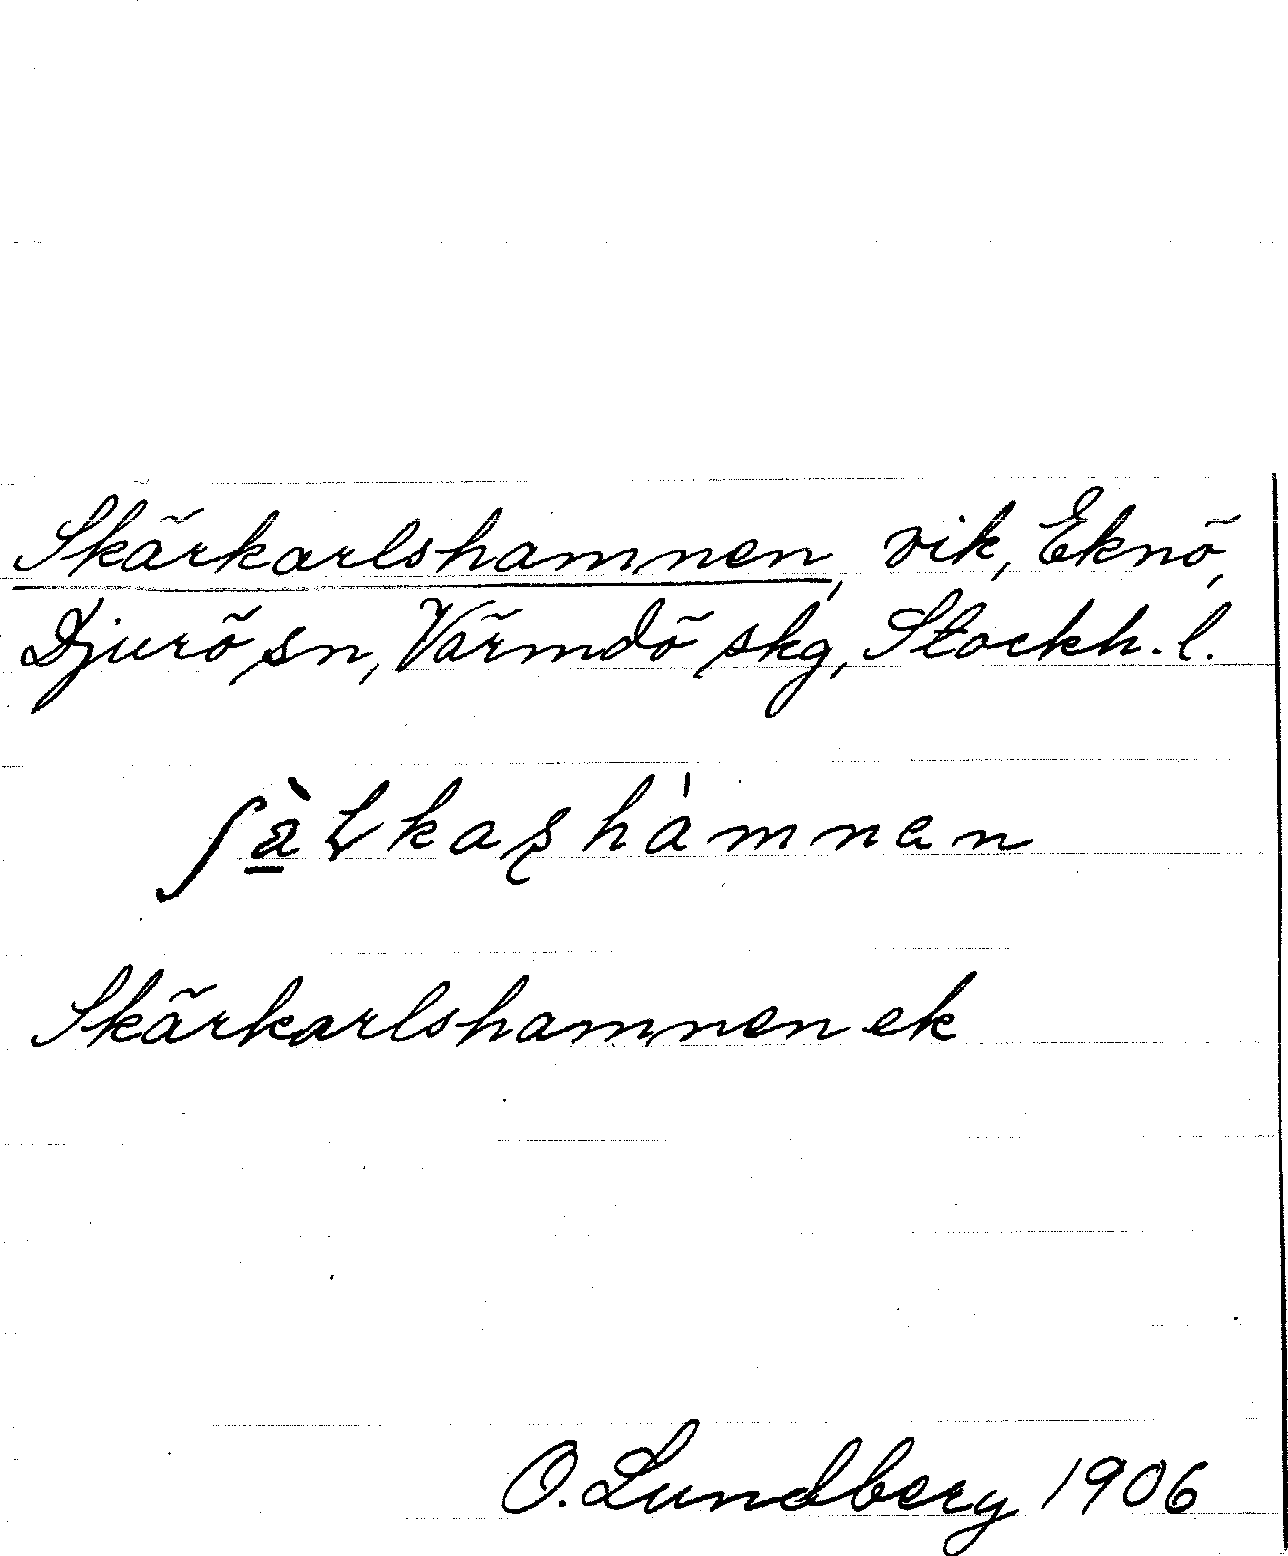 Skärkarlshamnen, vik, Eknö,
Djurö sn, Värmdö skg, Stockh. l.
Skärkarlshamnen ek
O. Lundberg 1906